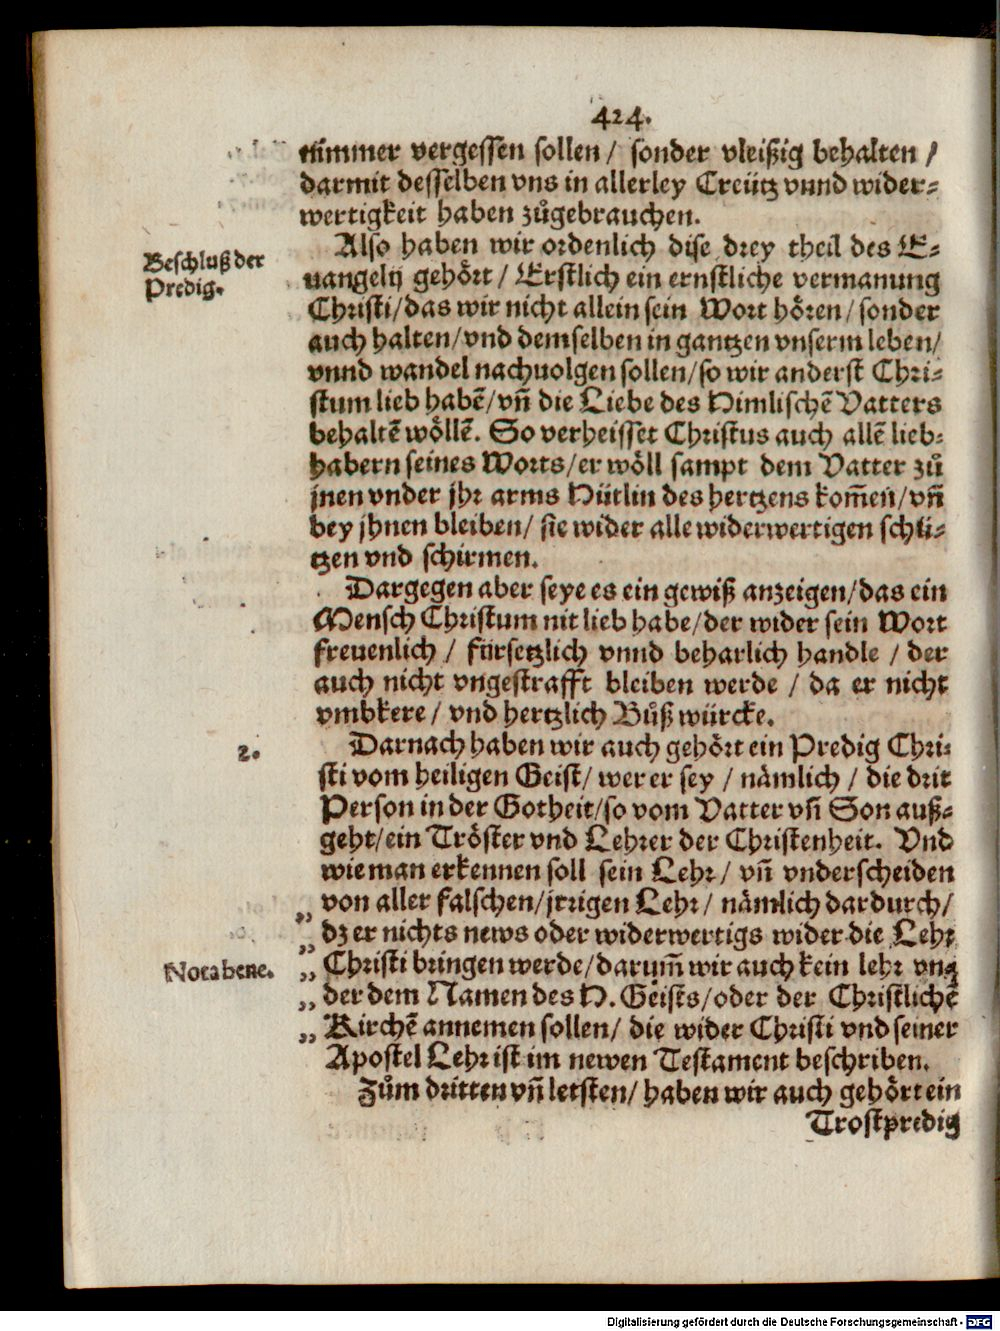 424.
nimmer vergessen sollen / sonder vleißig behalten /
darmit desselben vns in allerley Creütz vnnd wider-
wertigkeit haben zůgebrauchen.
Also haben wir ordenlich dise drey theil des E-
Beschluß der
Predig.
uangelij gehört / Erstlich ein ernstliche vermanung
Christi / das wir nicht allein sein Wort hören / sonder
auch halten / vnd demselben in gantzen vnserm leben /
vnnd wandel nachuolgen sollen / so wir anderst Chri-
stum lieb habē / vñ die Liebe des Himlischē Vatters
behaltē wöllē. So verheisset Christus auch allē lieb-
habern seines Worts / er wöll sampt dem Vatter zů
jnen vnder jhr arms Hütlin des hertzens kom̄en / vñ
bey jhnen bleiben / sie wider alle widerwertigen schü-
tzen vnd schirmen.
Dargegen aber seye es ein gewiß anzeigen / das ein
Mensch Christum nit lieb habe / der wider sein Wort
freuenlich / fürsetzlich vnnd beharlich handle / der
auch nicht vngestrafft bleiben werde / da er nicht
vmbkere / vnd hertzlich Bůß würcke.
2.
Darnach haben wir auch gehört ein Predig Chri-
sti vom heiligen Geist / wer er sey / nämlich / die drit
Person in der Gotheit / so vom Vatter vñ Son auß-
geht / ein Tröster vnd Lehrer der Christenheit. Vnd
wie man erkennen soll sein Lehr / vñ vnderscheiden
„ von aller falschen / jrrigen Lehr / nämlich dardurch /
„ dz er nichts news oder widerwertigs wider die Lehr
Nota bene.
„ Christi bringen werde / darum̄ wir auch kein lehr vn-
„ der dem Namen des H. Geists / oder der Christlichē
„ Kirchē annemen sollen / die wider Christi vnd seiner
Apostel Lehr ist im newen Testament beschriben.
Zům dritten vñ letsten / haben wir auch gehört ein
Trostpredig
Digitalisierung gefördert durch die Deutsche Forschungsgemeinschaft - DFG